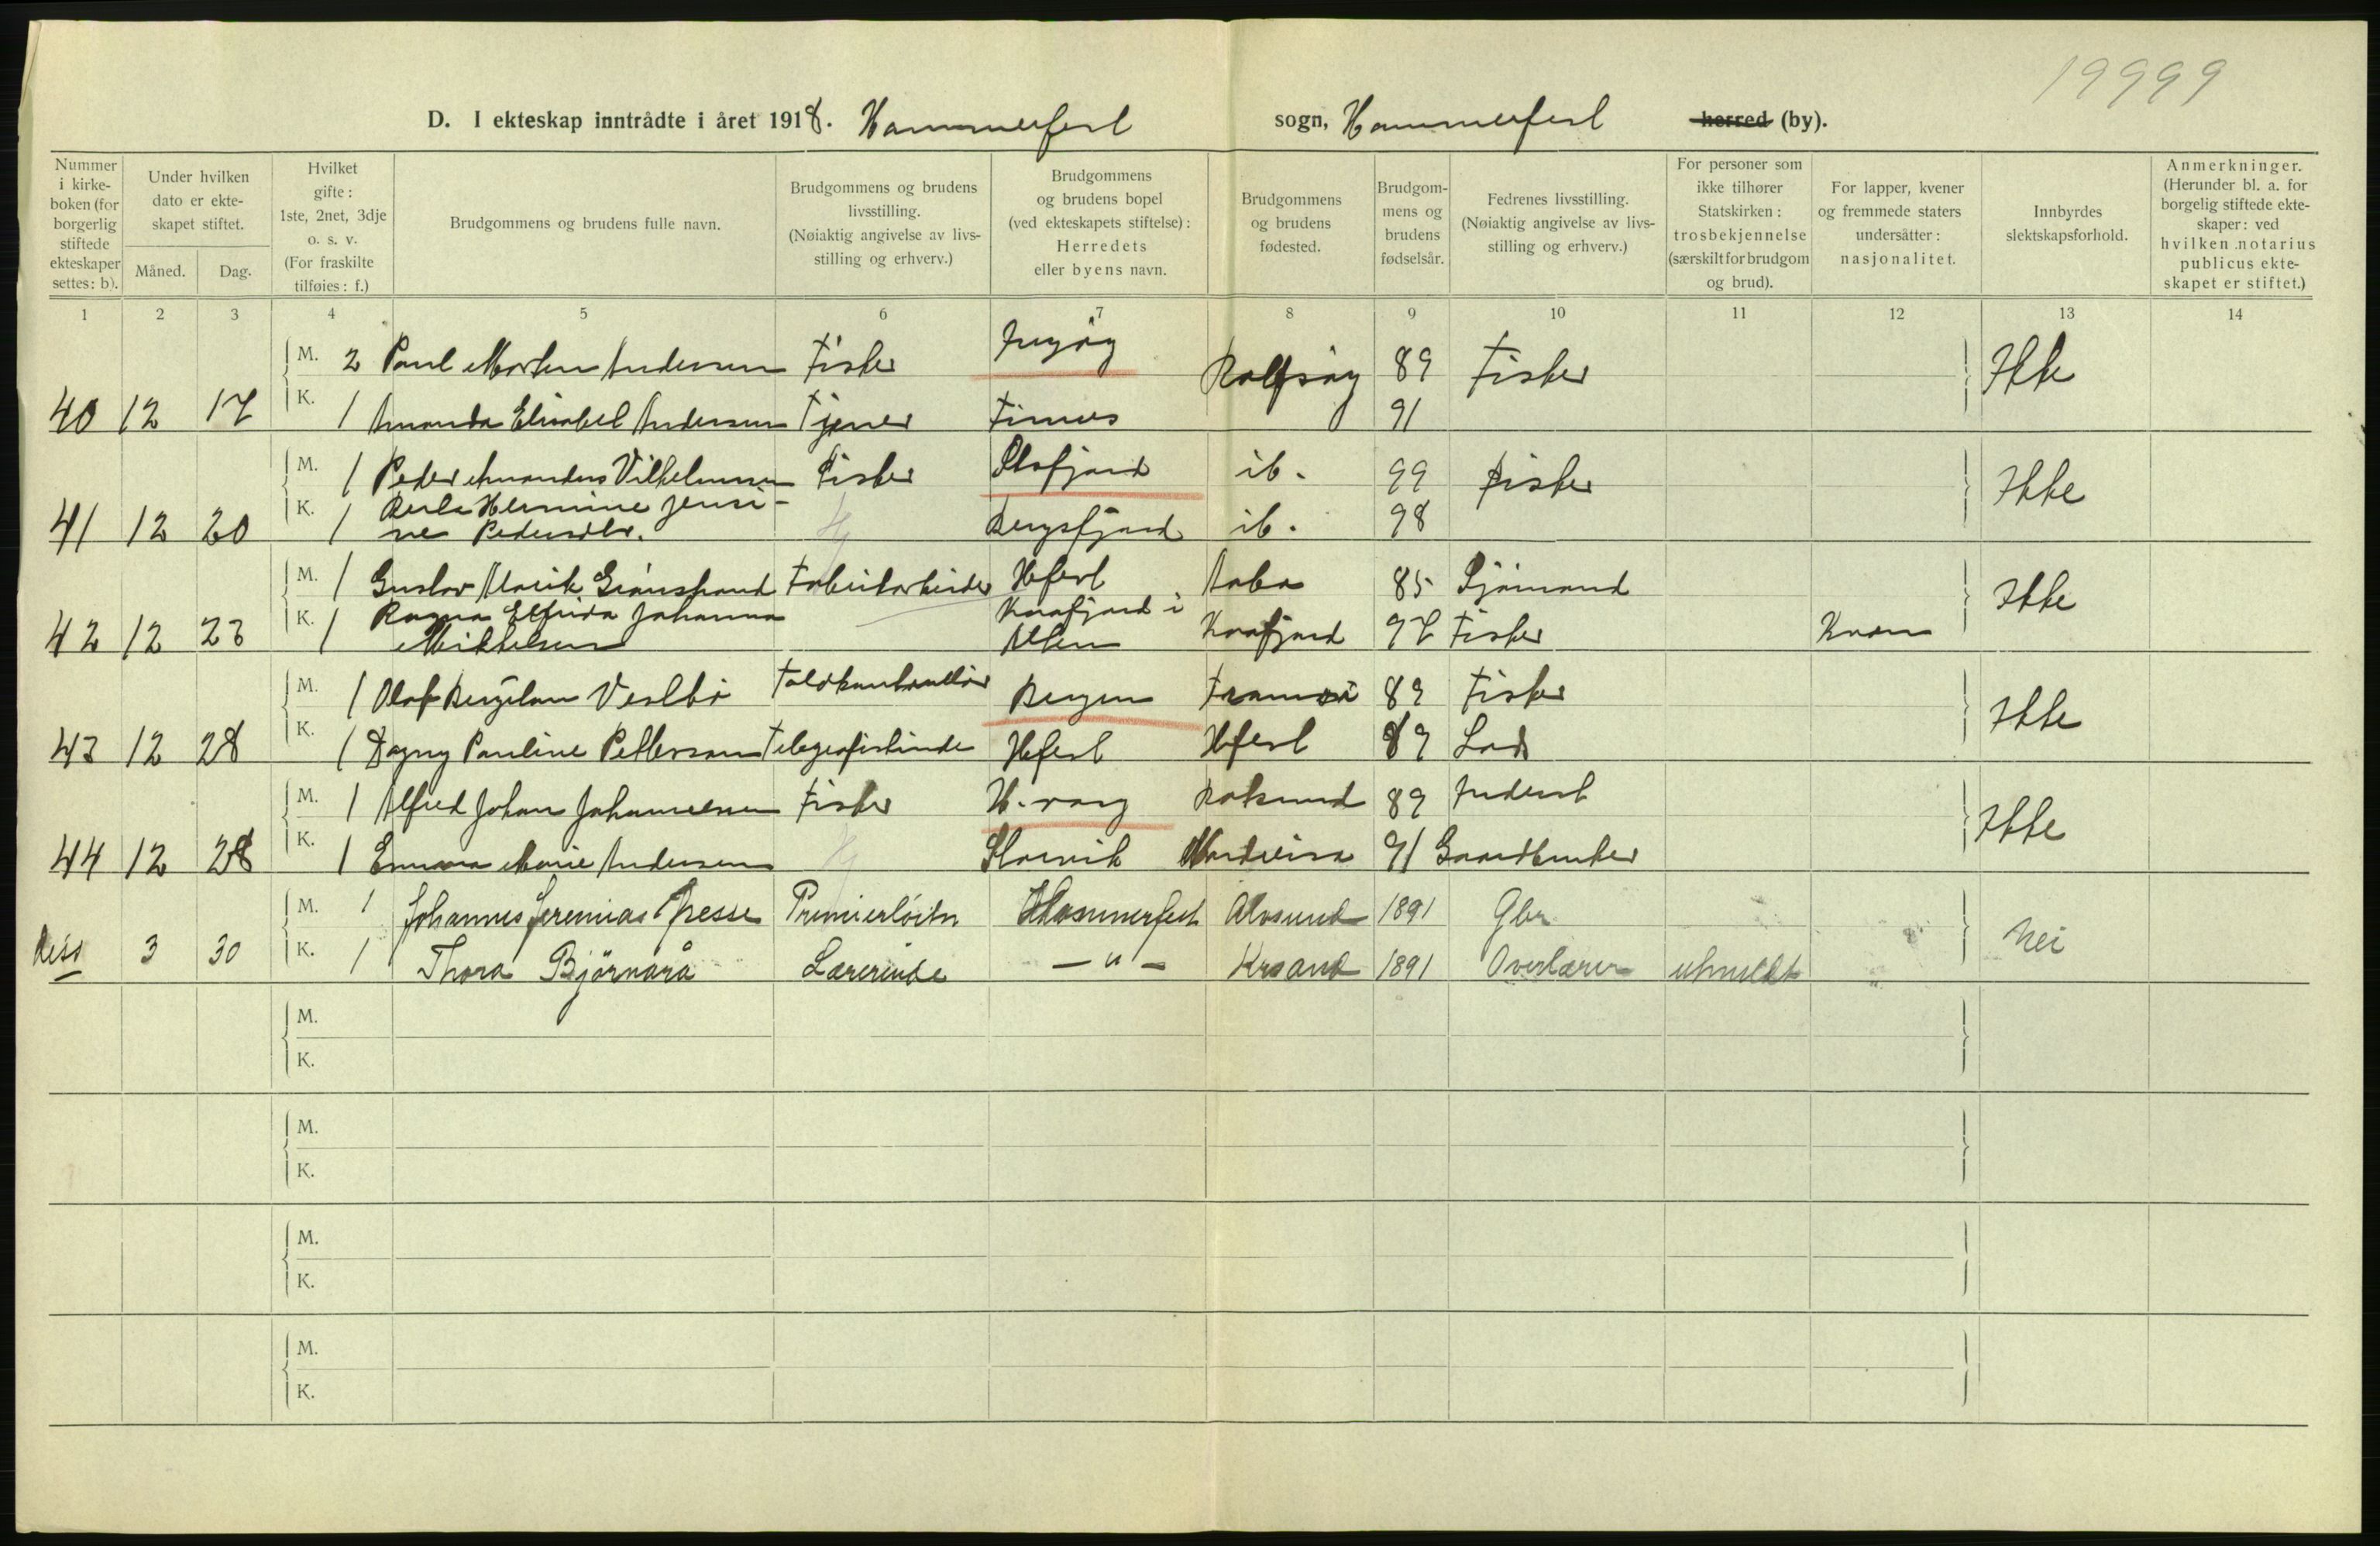 19999
D. I ekteskap inntrådte i året 1918. Hammerfest sogn, Hammerfest herred (by).
Nummer i kirkeboken (for borgerlig stiftede ekteskaper settes: b).
Under hvilken dato er ekteskapet stiftet.
Måned. Dag.
Hvilket gifte: 1ste, 2net, 3dje o. s. v. (For fraskilte tilføies: f.)
Brudgommens og brudens fulle navn.
Brudgommens og brudens livsstilling. (Nøiaktig angivelse av livsstilling og erhverv.)
Brudgommens og brudens bopel (ved ekteskapets stiftelse): Herredets eller byens navn.
Brudgommens og brudens fødested.
Brudgommens og brudens fødselsår.
Fedrenes livsstilling. (Nøiaktig angivelse av livsstilling og erhverv.)
For personer som ikke tilhører Statskirken: trosbekjennelse (særskilt for brudgom og brud).
For lapper, kvener og fremmede staters undersåtter: nasjonalitet.
Innbyrdes slektskapsforhold.
Anmerkninger. (Herunder bl. a. for borgelig stiftede ekteskaper: ved hvilken notarius publicus ekteskapet er stiftet.)
1 2 3 4 5 6 7 8 9 10 11 12 13 14
M. 2 Paul Morten Andersen Fisker Ingøy Rolfsøy 89 Fisker Ikke
40 12 17 K. 1 Amanda Elisabet Andersen Tjener 91
M. 1 Peder Amandus Vilhelmsen Fisker ib. 99 Fisker Ikke
41 12 20 K. 1 Berle Hermine Jensine Pedersdtr. Bergsfjord ib. 98
M. 1 Gustav Ularik Grönstrand Fabrikarbeider Hfest Aabo 85 Sjömand Ikke
42 12 23 K. 1 Ragna Elfrida Johanna Mikkelsen Kaafjord i Alten Kaafjord 97 Fisker Kvæn
M. 1 Olaf Bergeton Veslbö Toldkontrollör Bergen Tromsö 89 Fisker Ikke
43 12 28 K. 1 Dagny Pauline Pettersson Telegrafistinde Hfest Hfest 89 Lods
M. 1 Alfred Johan Johannesen Fisker H. vaag Kaksund 89 Inderst Ikke
44 12 28 K. 1 Emma Marie Andersen Slaevik Nordreisa 91 Gaardbruker
M. 1 Johannes Jeremias Hesse Premierlöitn Hammerfest Alvsund 1891 Gbr Nei
diss 3 30 K. 1 Thora Björnarå Lærerinde — " — Krsand 1891 Overlærer utmeldt
M.
K.
M.
K.
M.
K.
M.
K.